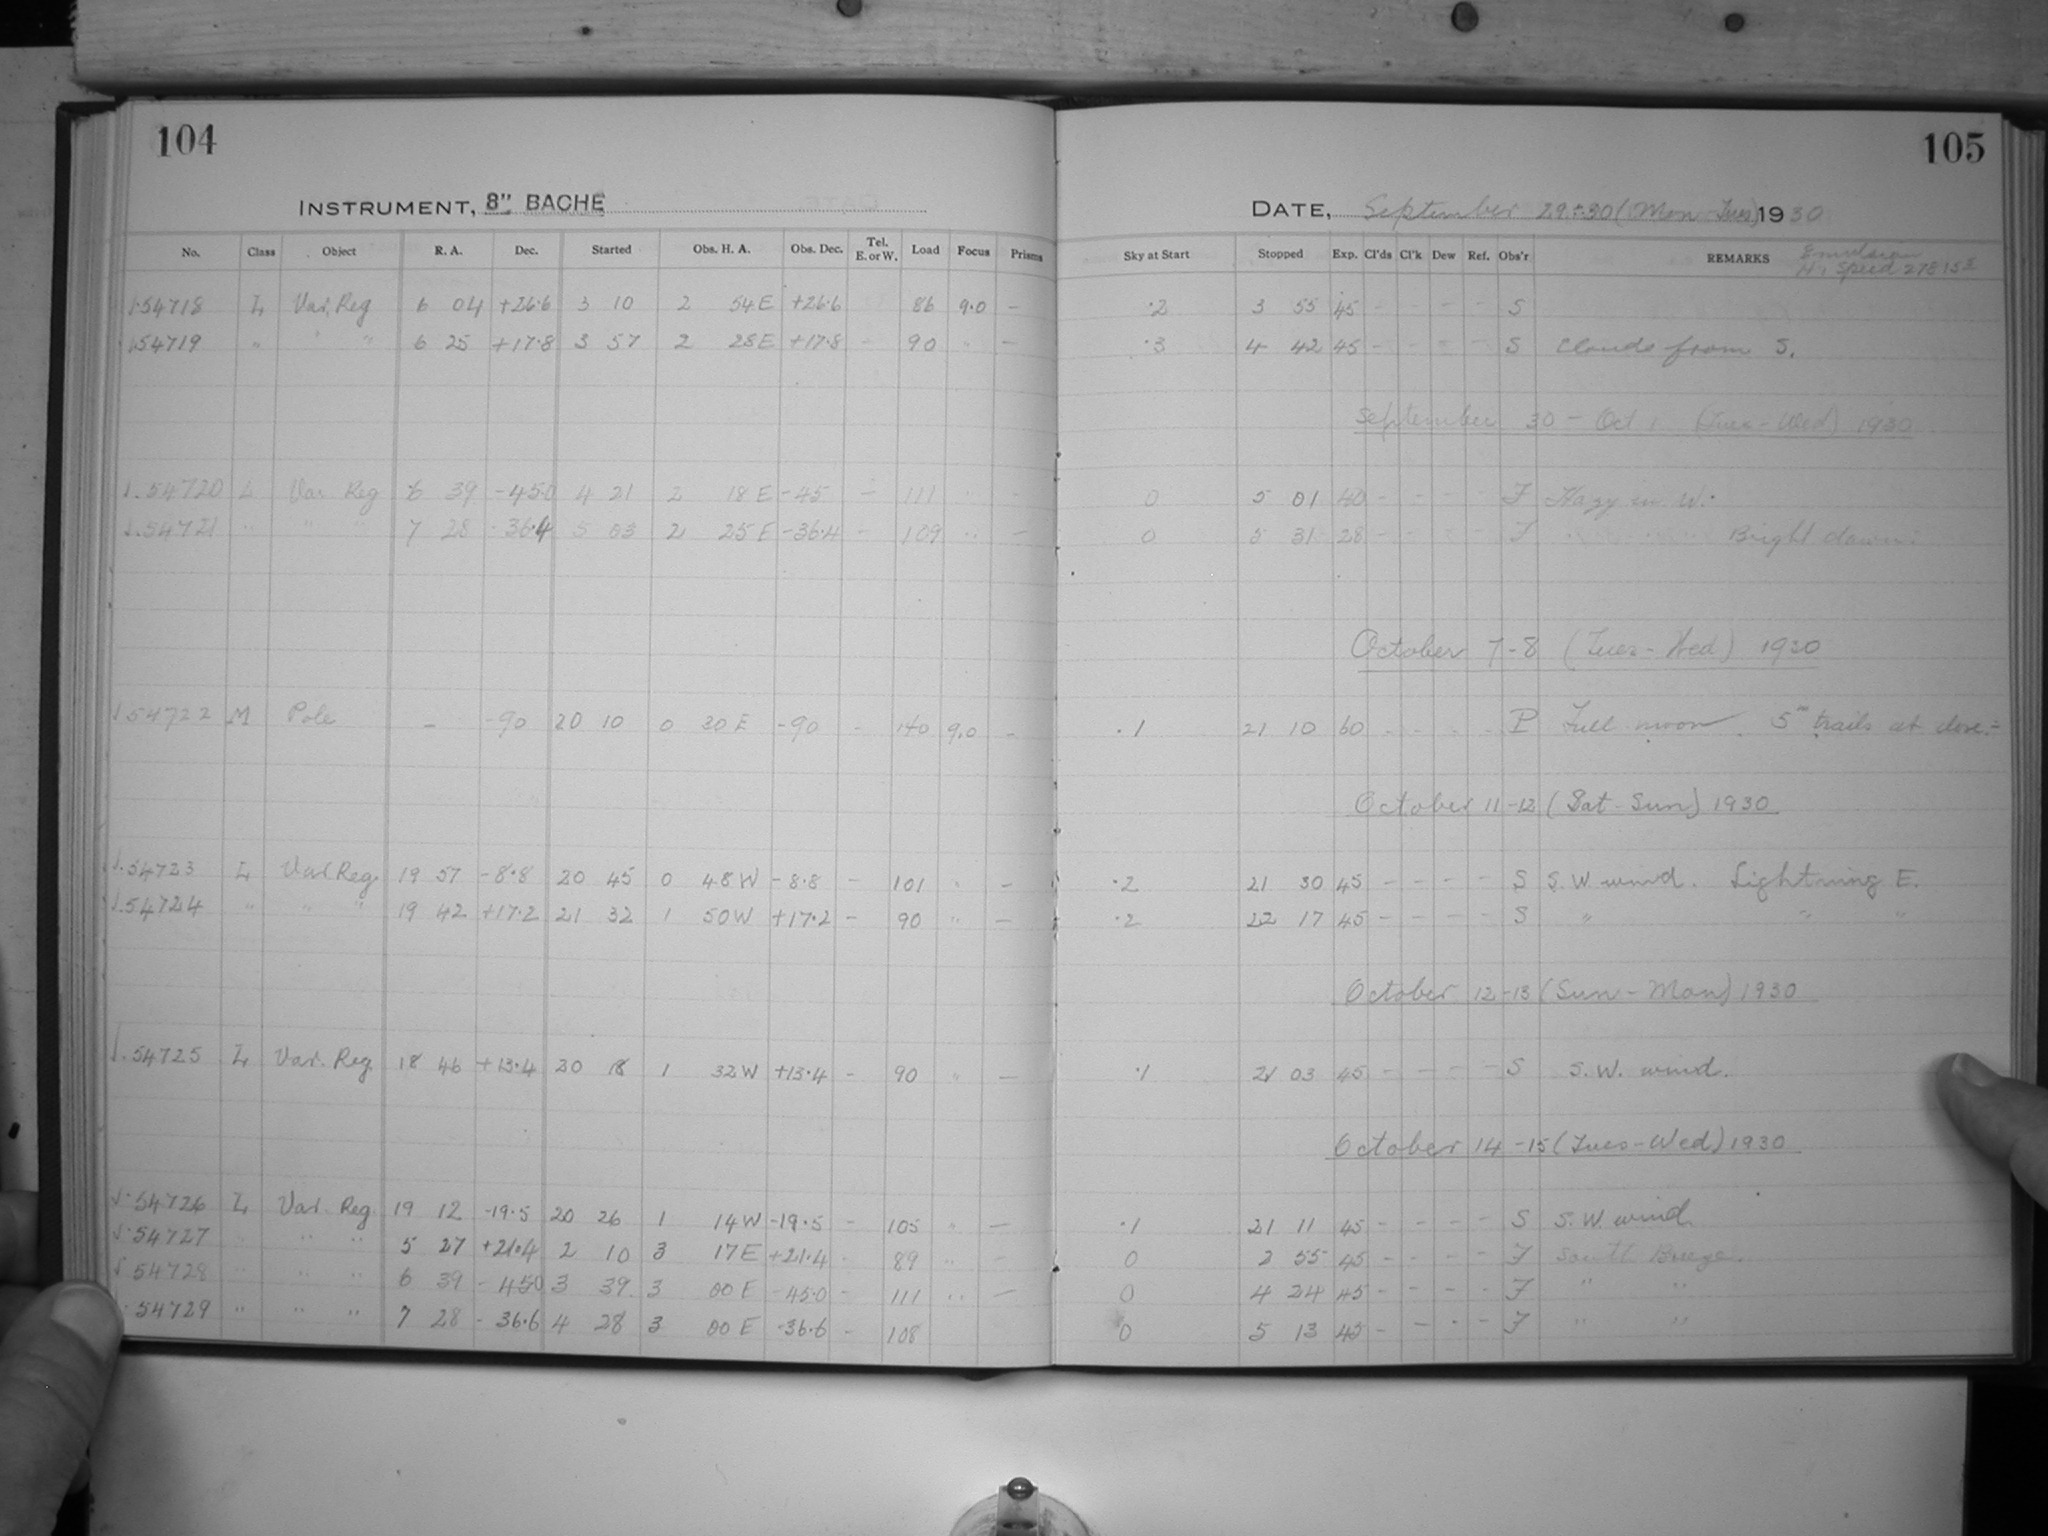 104
INSTRUMENT, 8" BACHE
No. Class Object R. A. Dec. Started Obs. H. A. Obs. Dec. Tel. E. or W. Load Focus Prisms
54718 L Var. Reg 6 04 +26.6 3 10 2 54 E +26.6 86 9.0 —
54719 " " " 6 25 +17.8 3 57 2 28 E +17.8 - 90 " —
54720 L Var. Reg 6 39 -45.0 4 21 2 18 E -45 - 111 " -
54721 " " " 7 28 -36.4 5 03 2 25 E -36.4 - 109 " —
54722 M Pole - -90 20 10 0 30 E -90 - 140 9.0 -
54723 L Var Reg. 19 57 -8.8 20 45 0 48 W -8.8 - 101 " —
54724 " " " 19 42 +17.2 21 32 1 50 W +17.2 - 90 " —
54725 L Var. Reg. 18 46 +13.4 20 18 1 32 W +13.4 - 90 " —
54726 L Var. Reg. 19 12 -19.5 20 26 1 14 W -19.5 - 105 " —
54727 " " " 5 27 +21.4 2 10 3 17 E +21.4 - 89 " —
54728 " " " 6 39 -45.0 3 39 3 00 E -45.0 - 111 " —
54729 " " " 7 28 -36.6 4 28 3 00 E -36.6 - 108
105
DATE, September 29-30 (Mon-Tues) 1930
Sky at Start Stopped Exp. Cl'ds Cl'k Dew Ref. Obs'r REMARKS Emulsion
Hi Speed 27815
.2 3 55 45 - - - - S
.3 4 42 45 - - - - S Clouds from S.
September 30 - Oct 1 (Tues-Wed) 1930
0 5 01 40 - - - - F Hazy in W.
0 5 31 28 - - - - F " " " Bright dawn.
October 7-8 (Tues-Wed) 1930
.1 21 10 60 - - - - P Full moon. 5m trails at close.
October 11-12 (Sat-Sun) 1930
.2 21 30 45 - - - - S S.W. wind. Lightning E.
.2 22 17 45 - - - - S " " "
October 12-13 (Sun-Mon) 1930
.1 21 03 45 - - - - S S.W. wind.
October 14-15 (Tues-Wed) 1930
.1 21 11 45 - - - - S S.W. wind
0 2 55 45 - - - - F South Breeze.
0 4 24 45 - - - - F " "
0 5 13 45 - - - - F " "